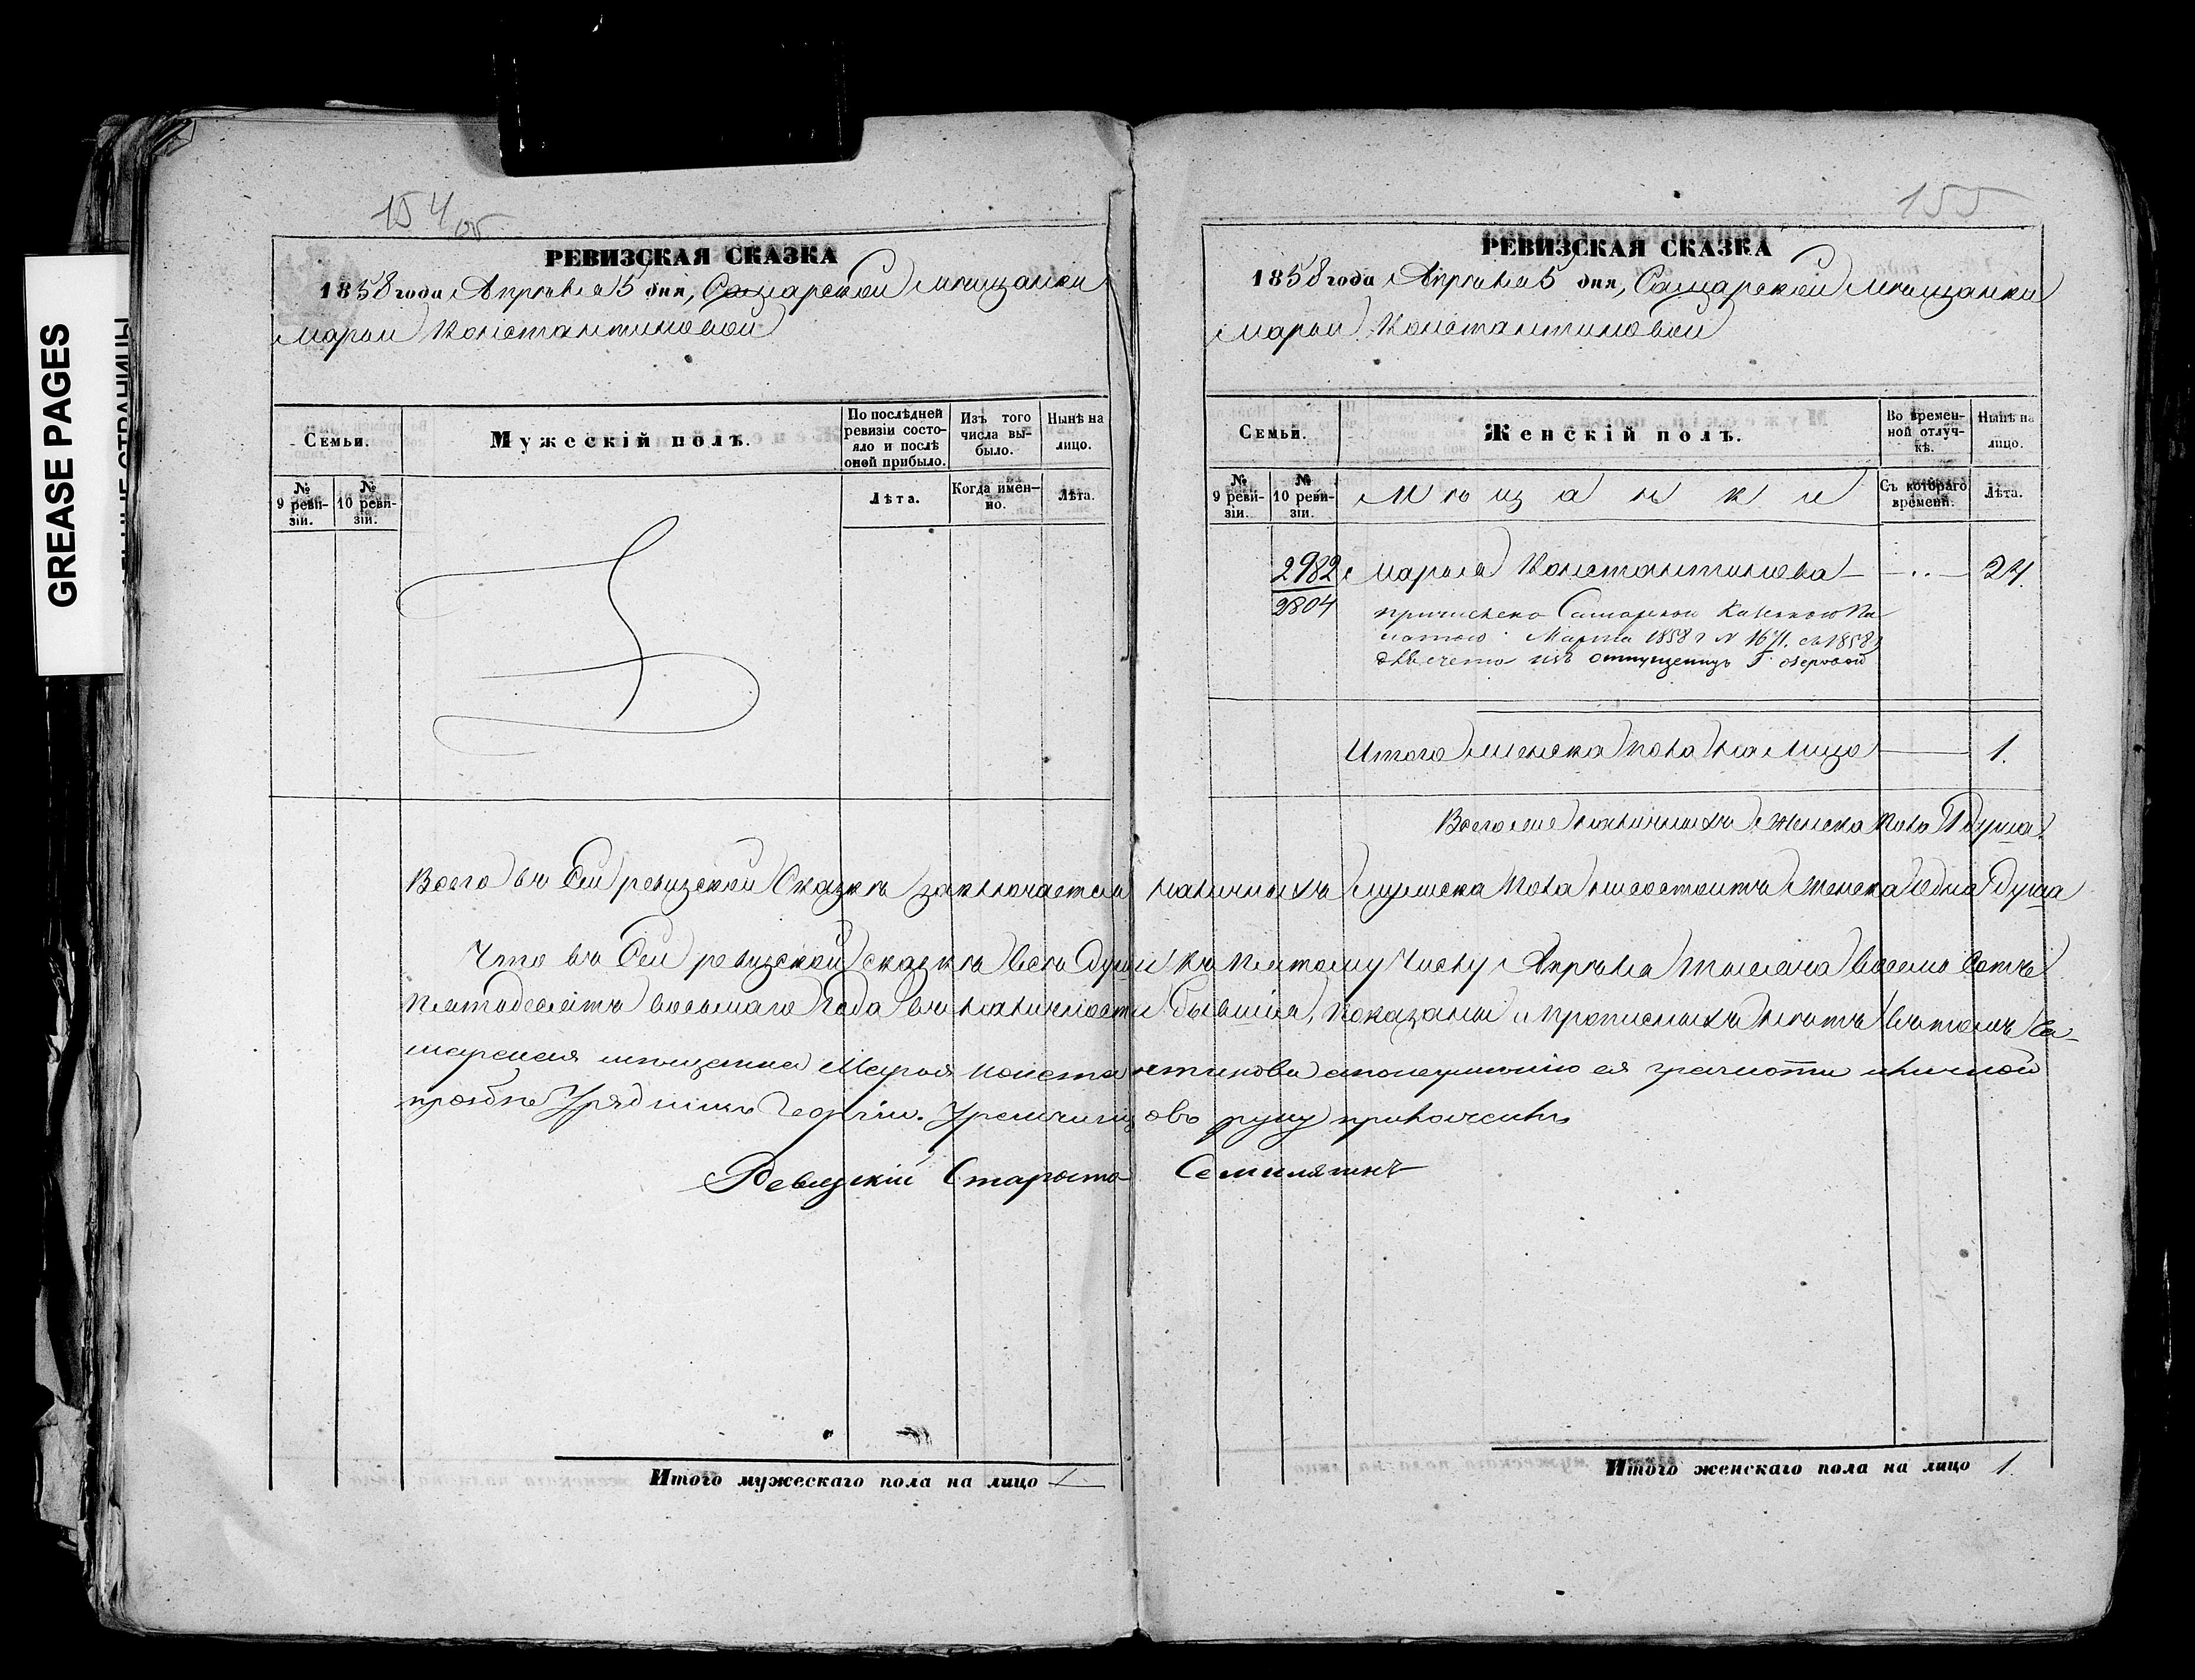 GREASE PAGES
154
РЕВИЗСКАЯ СКАЗКА
1858 года Апрѣля 5 дня, Самарской мѣщанки
Марьи Константиновой
Семьи.
Мужескій полъ.
По послѣдней ревизіи состояло и послѣ оной прибыло.
Изъ того числа выбыло.
Нынѣ на лицо.
№ 9 ревизіи.
№ 10 ревизіи.
Лѣта.
Когда именно.
Лѣта.
155
РЕВИЗСКАЯ СКАЗКА
1858 года Апрѣля 5 дня, Самарской мѣщанки
Марьи Константиновой
Семьи.
Женскій полъ.
Во временной отлучкѣ.
Нынѣ на лицо.
№ 9 ревизіи.
№ 10 ревизіи.
Мѣщанки
Съ котораго времени.
Лѣта.
2982 Марья Константинова — — 24
2804
причислена Самарскою Казенною Па
латою Марта 1858 г № 1671. съ 1858 г
изъ отпущенницъ Г. Озеровой
Итого женска пола на лицо — 1.
Всего же наличныхъ женска пола 1 душа.
Всего въ сей ревизской сказкѣ заключается наличныхъ мужеска пола не состоитъ женска одна душа
Что въ сей ревизской сказкѣ всѣ души къ пятому числу Апрѣля тысяча восемь сотъ
пятьдесятъ восьмаго года въ наличности бывшія, показаны и прописныхъ нѣтъ въ томъ Са-
марская мѣщанка Марья Константинова а по неумѣнію ея грамоти и личной
прозбѣ Урядникъ Георгій руку приложилъ
Ревизскій Староста
Итого мужескаго пола на лицо —
Итого женскаго пола на лицо 1.